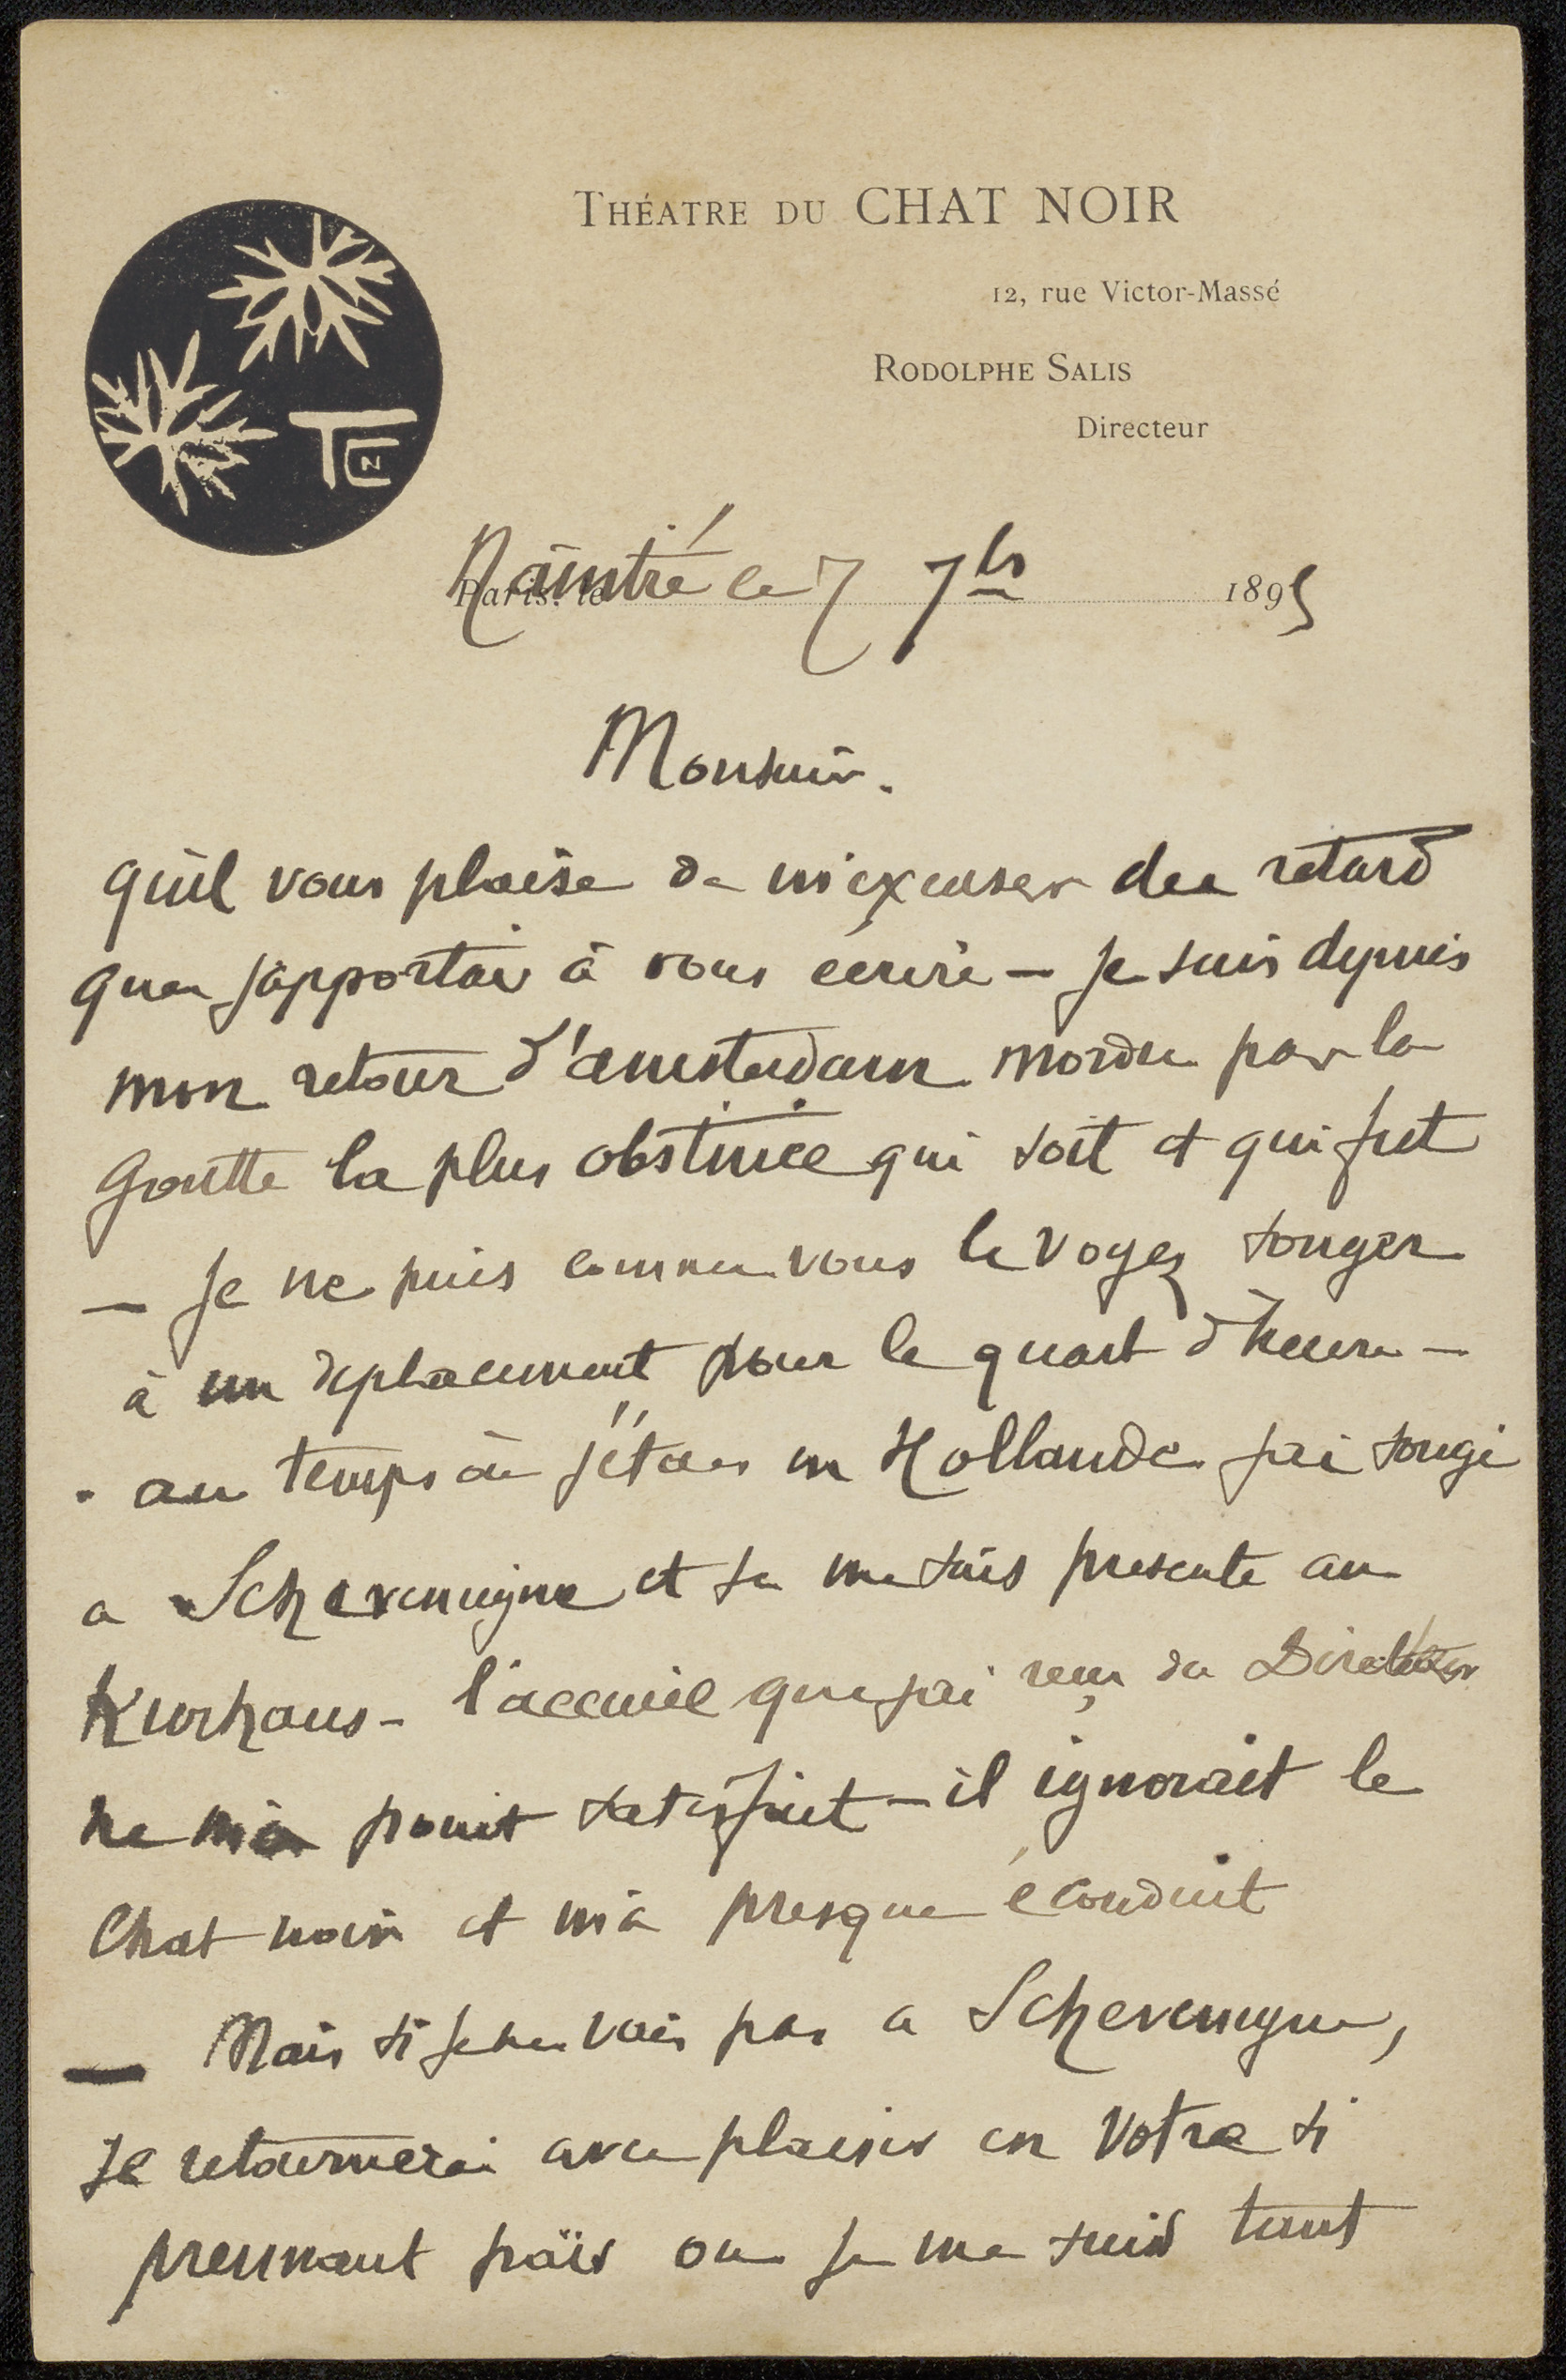 THÉATRE DU CHAT NOIR
12, rue Victor-Massé
RODOLPHE SALIS
Directeur
TCN
Paris, le Naintré le 7 7bre 1895
Monsieur.
Qu'il vous plaise de m'excuser du retard
que j'apportai à vous écrire — je suis depuis
mon retour d'amsterdam mordu par la
Goutte la plus obstinée qui soit et qui fut
— Je ne puis comme vous le voyez songer
à un deplacement pour le quart d'heure —
. au temps où j'étais en Hollande j'ai songé
a Schevenigne et je me suis presenté au
Kurhaus - l'accueil que j'ai reçu du Directeur
ne m'a point satisfait — il ignorait le
Chat noir et m'a presque éconduit
— Mais si je ne vais pas a Schevenigne,
Je retournerai avec plaisir en votre si
prennant païs ou je me suis tant